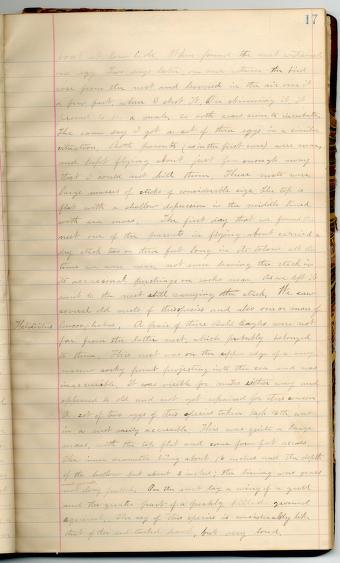 17
When found the nest contained
one egg. Two days later, on our return the bird
rose from the nest and hovered in the air over it
a few feet, when I shot it. On skinning it, it
proved to be a male, so both sexes seem to incubate.
The same day I got a set of three eggs in a similar
situation. Both parents (as in the first case) were near,
and kept flying about just far enough away
that I could not kill them. These nests were
large masses of sticks of considerable size, the top is
flat with a shallow depression in the middle lined
with sea moss. The first day that we found a
nest one of the parents in flying about carried a
dry stick two or three feet long in its talons all the
time we were near, not even leaving the stick in
its occasional perchings on rocks near. As we left it
went to the nest still carrying the stick. We saw
several old nests of this species and also one or more of
leucocephalus. A pair of these Bald Eagles were not
far from the latter nest, which probably belonged
to them. This nest was on the upper edge of a very
narrow rocky point projecting into the sea and was
inaccessible. It was visible for miles either way and
appeared to be old and not yet repaired for this season
A set of two eggs of this species taken was
in a nest easily accessible. This was quite a large
mass, with the top flat and some four feet across.
the inner diameter being about 14 inches and the depth
of the hollow but about 3 inches; the lining was grass
On the nest lay a wing of a gull
and the greater part of a freshly killed ground
squirrel. The cry of this species is unmistakably like
that of the red-tailed hawk, but very loud.